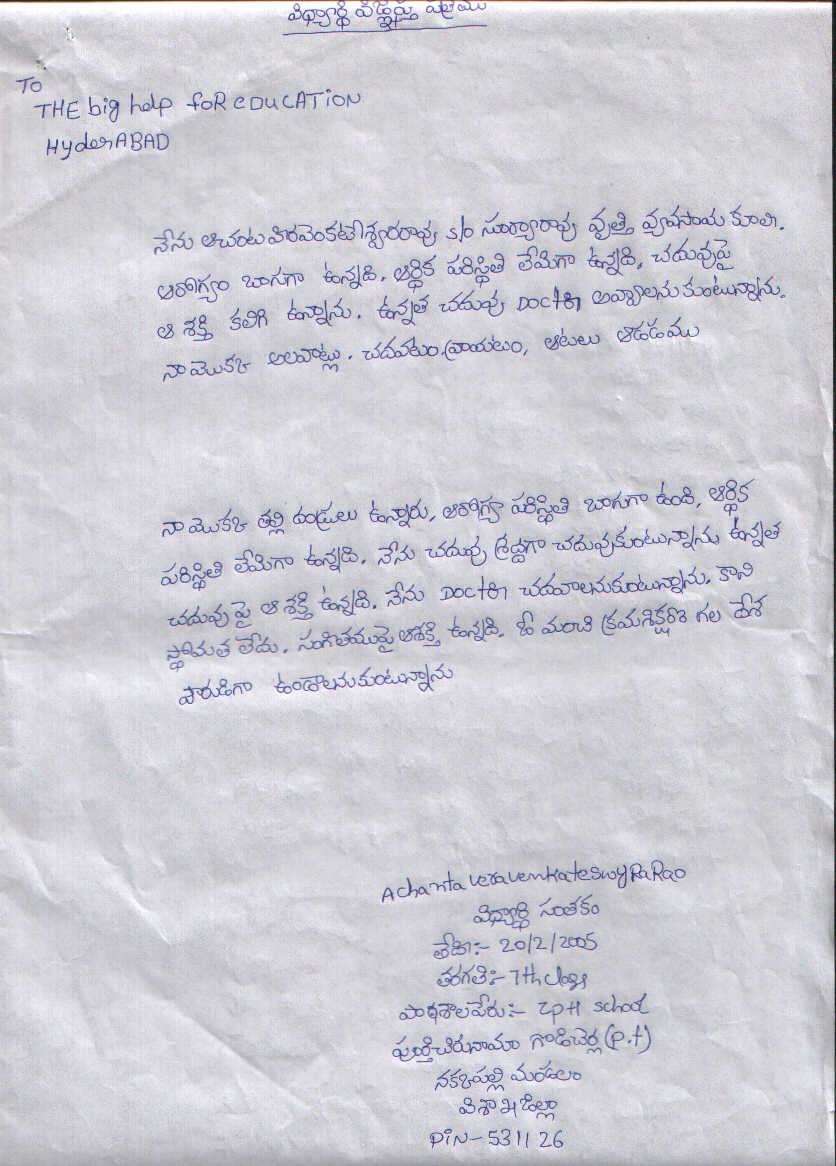 విద్యార్థి విజ్ఞప్తి పత్రము
To
THE big help foR eDUCATION
HyderABAD
నేను ఆచంట వీరవెంకటేశ్వరరావు s/o సూర్యారావు వృత్తి వ్యవసాయ కూలి.
ఆరోగ్యం బాగుగా ఉన్నది. ఆర్థిక పరిస్థితి లేమిగా ఉన్నది, చదువుపై
ఆ శక్తి కలిగి ఉన్నాను. ఉన్నత చదువు Docter అవ్వాలనుకుంటున్నాను.
నాయొక్క అలవాట్లు. చదవటం, వ్రాయటం, ఆటలు ఆడడము
నా యొక్క తల్లి దండ్రులు ఉన్నారు, ఆరోగ్య పరిస్థితి బాగుగా ఉంది, ఆర్థిక
పరిస్థితి లేమిగా ఉన్నది. నేను చదువు శ్రద్దగా చదువుకుంటున్నాను ఉన్నత
చదువు పై ఆ శక్తి ఉన్నది. నేను Docter చదవాలనుకుంటున్నాను. కాని
స్థోమత లేదు. సంగీతముపై ఆశక్తి ఉన్నది. ఓ మంచి క్రమశిక్షణ గల దేశ
పౌరుడిగా ఉండాలనుకుంటున్నాను
AchantaveravenkateswyRaRao
విధ్యార్థి సంతకం
తేది:- 20/2/2005
తరగతి:- 7th class
పాఠశాలపేరు:- ZpH school
పూర్తిచిరునామా గొడిచెర్ల (p.t)
నక్కపల్లి మండలం
విశాఖజిల్లా
PiN- 531126